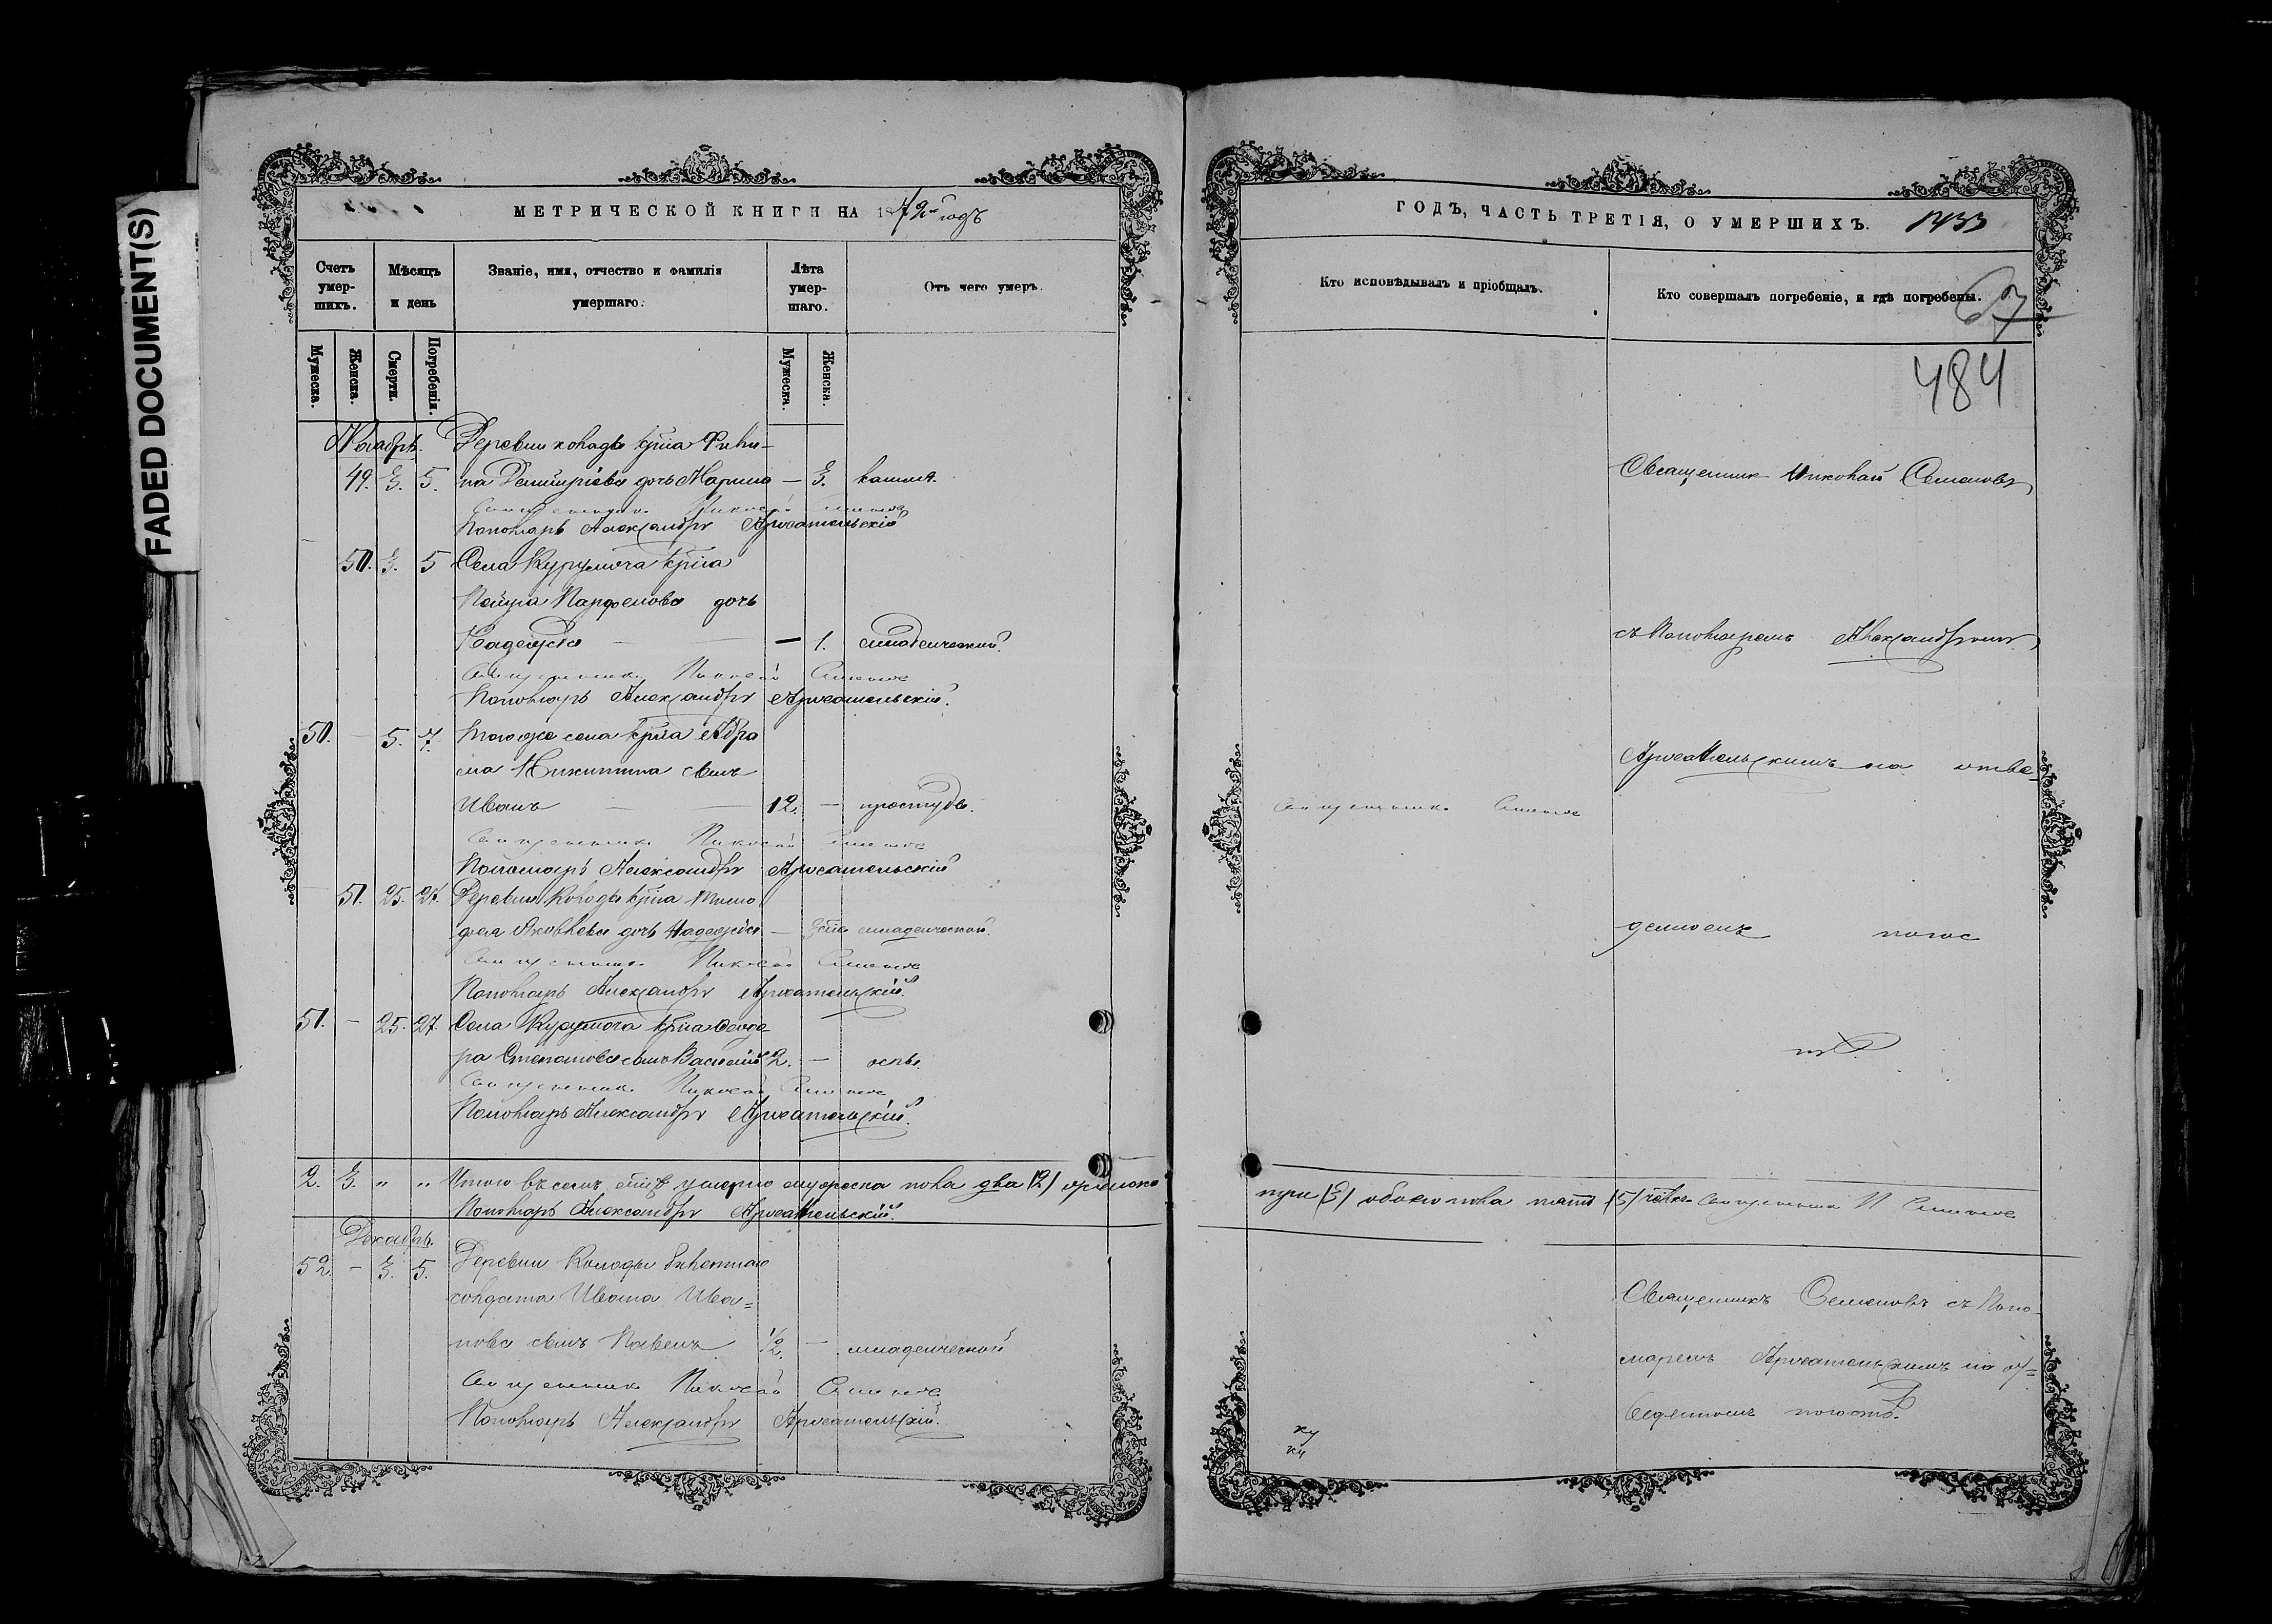 FADED DOCUMENT(S)
МЕТРИЧЕСКОЙ КНИГИ НА 1872й годъ
Счетъ умер-шихъ.
Мѣсяцъ и день
Званіе, имя, отчество и фамилія умершаго.
Лѣта умер-шаго.
Отъ чего умеръ.
Мужеска.
Женска.
Смерти.
Погребенія.
Мужеска.
Женска.
Ноябрь. Деревни Колоды крна Фили-
49. 3. 5. па Димитріева дочь Марина — 3. кашля.
Священникъ Николай Семеновъ
Пономарь Александръ Архангельскій
50. 3. 5 Села Курумоча крна
Петра Парфенова дочь
Надежда — — 1. младенческой.
Священникъ Николай Семеновъ
Пономарь Александръ Архангельскій.
50. — 5. 7. Того же села крна Абра
ма Никитина сынъ
Иванъ — 12. — простуды.
Священникъ Николай Семеновъ
Пономарь Александръ Архангельскій
51. 25. 27. Деревни Колоды крна Тимо
фея Яковлева дочь Надежда — младенческой.
Священникъ Николай Семеновъ
Пономарь Александръ Архангельскій.
51. — 25. 27. Села Курумоча крна Феодо
ра Степанова сынъ Василій 2. — оспы.
Священникъ Николай Семеновъ
Пономарь Александръ Архангельскій.
2. 3. „ „ Итого въ семъ м̃цѣ умерло мужеска пола два (2) женска
Пономарь Александръ Архангельскій.
Декабрь.
52. — 3. 5. Деревни Колоды билетнаго
солдата Ивана Ива=
нова сынъ Павелъ 1/2. — младенческой
Священникъ Николай Семеновъ
Пономарь Александръ Архангельскій.
ГОДЪ, ЧАСТЬ ТРЕТІЯ, О УМЕРШИХЪ. 1433
Кто исповѣдывалъ и пріобщалъ.
Кто совершалъ погребеніе, и гдѣ погребены.
484
Священникъ Николай Семеновъ
съ Пономаремъ Александромъ
Архангельскимъ на отве-
Священникъ Семеновъ
денномъ погос
тѣ.
три (3) обоего пола пять (5) челов. Священникъ Н Семеновъ
Священникъ Семеновъ съ Поно
маремъ Архангельскимъ на от=
веденномъ погостѣ.